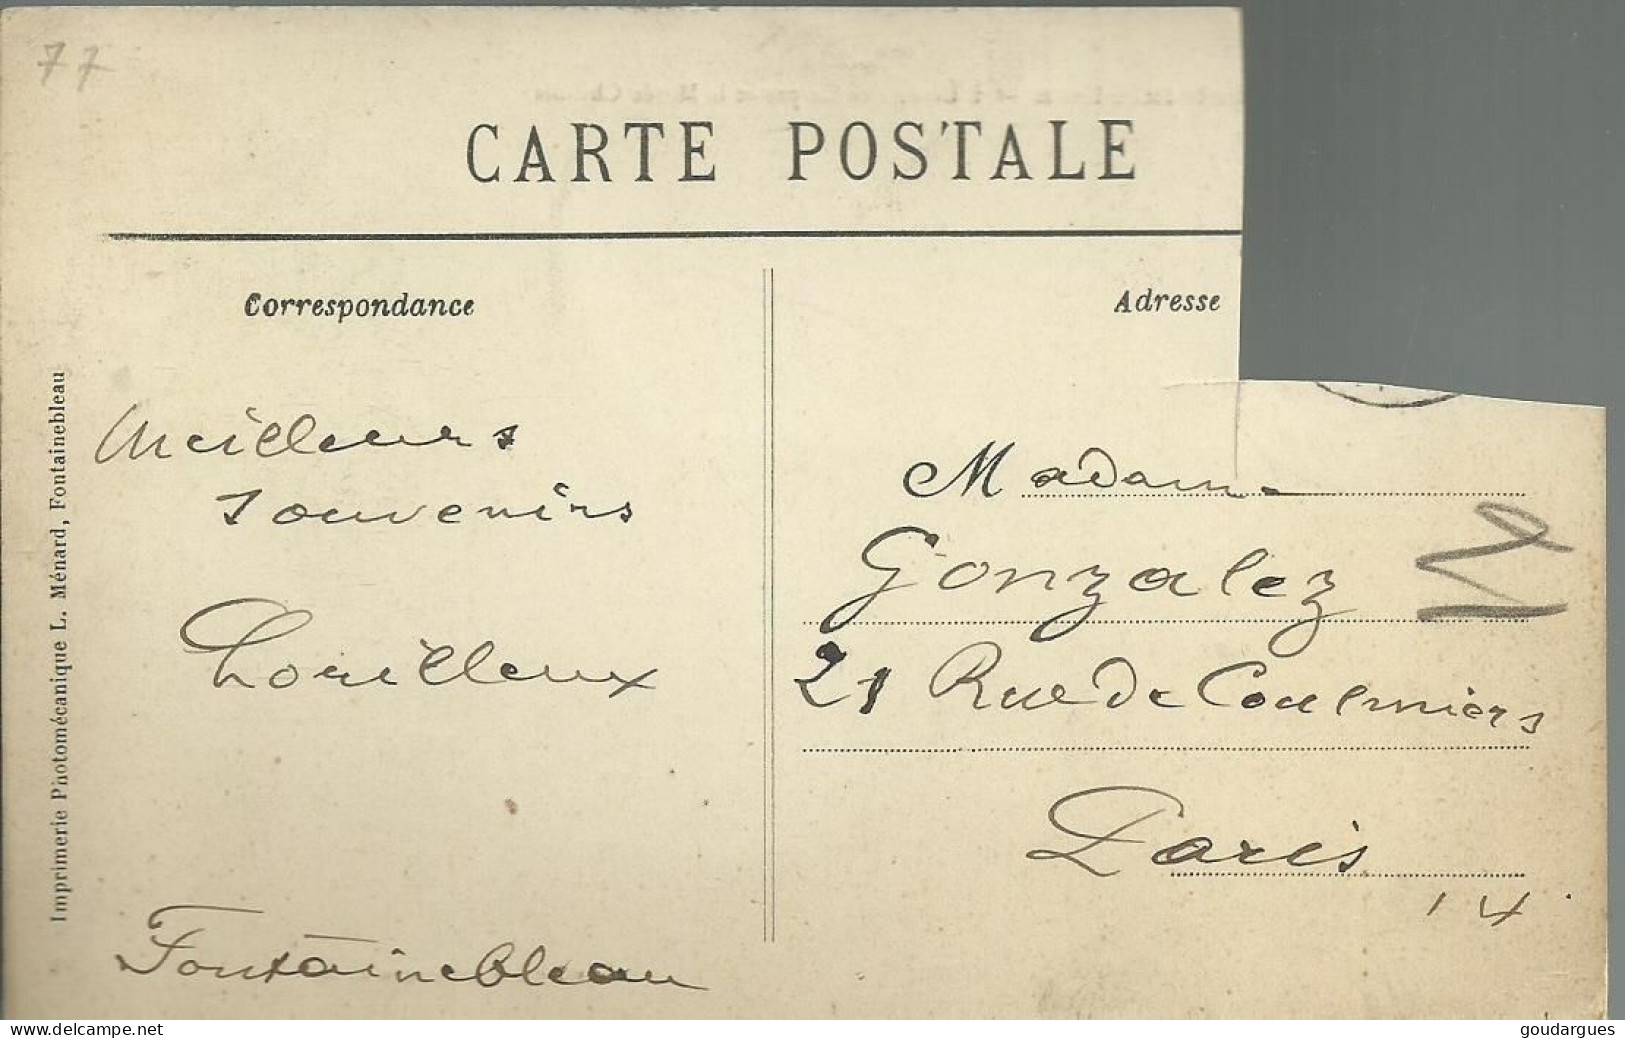 77
CARTE POSTALE
Correspondance
Adresse
Imprimerie Photomécanique L. Ménard, Fontainebleau
Meilleurs
souvenirs
Lorilleux
Fontainebleau
Madame
Gonzalez
21 Rue de Coulmiers
Paris
14
www.delcampe.net
goudargues